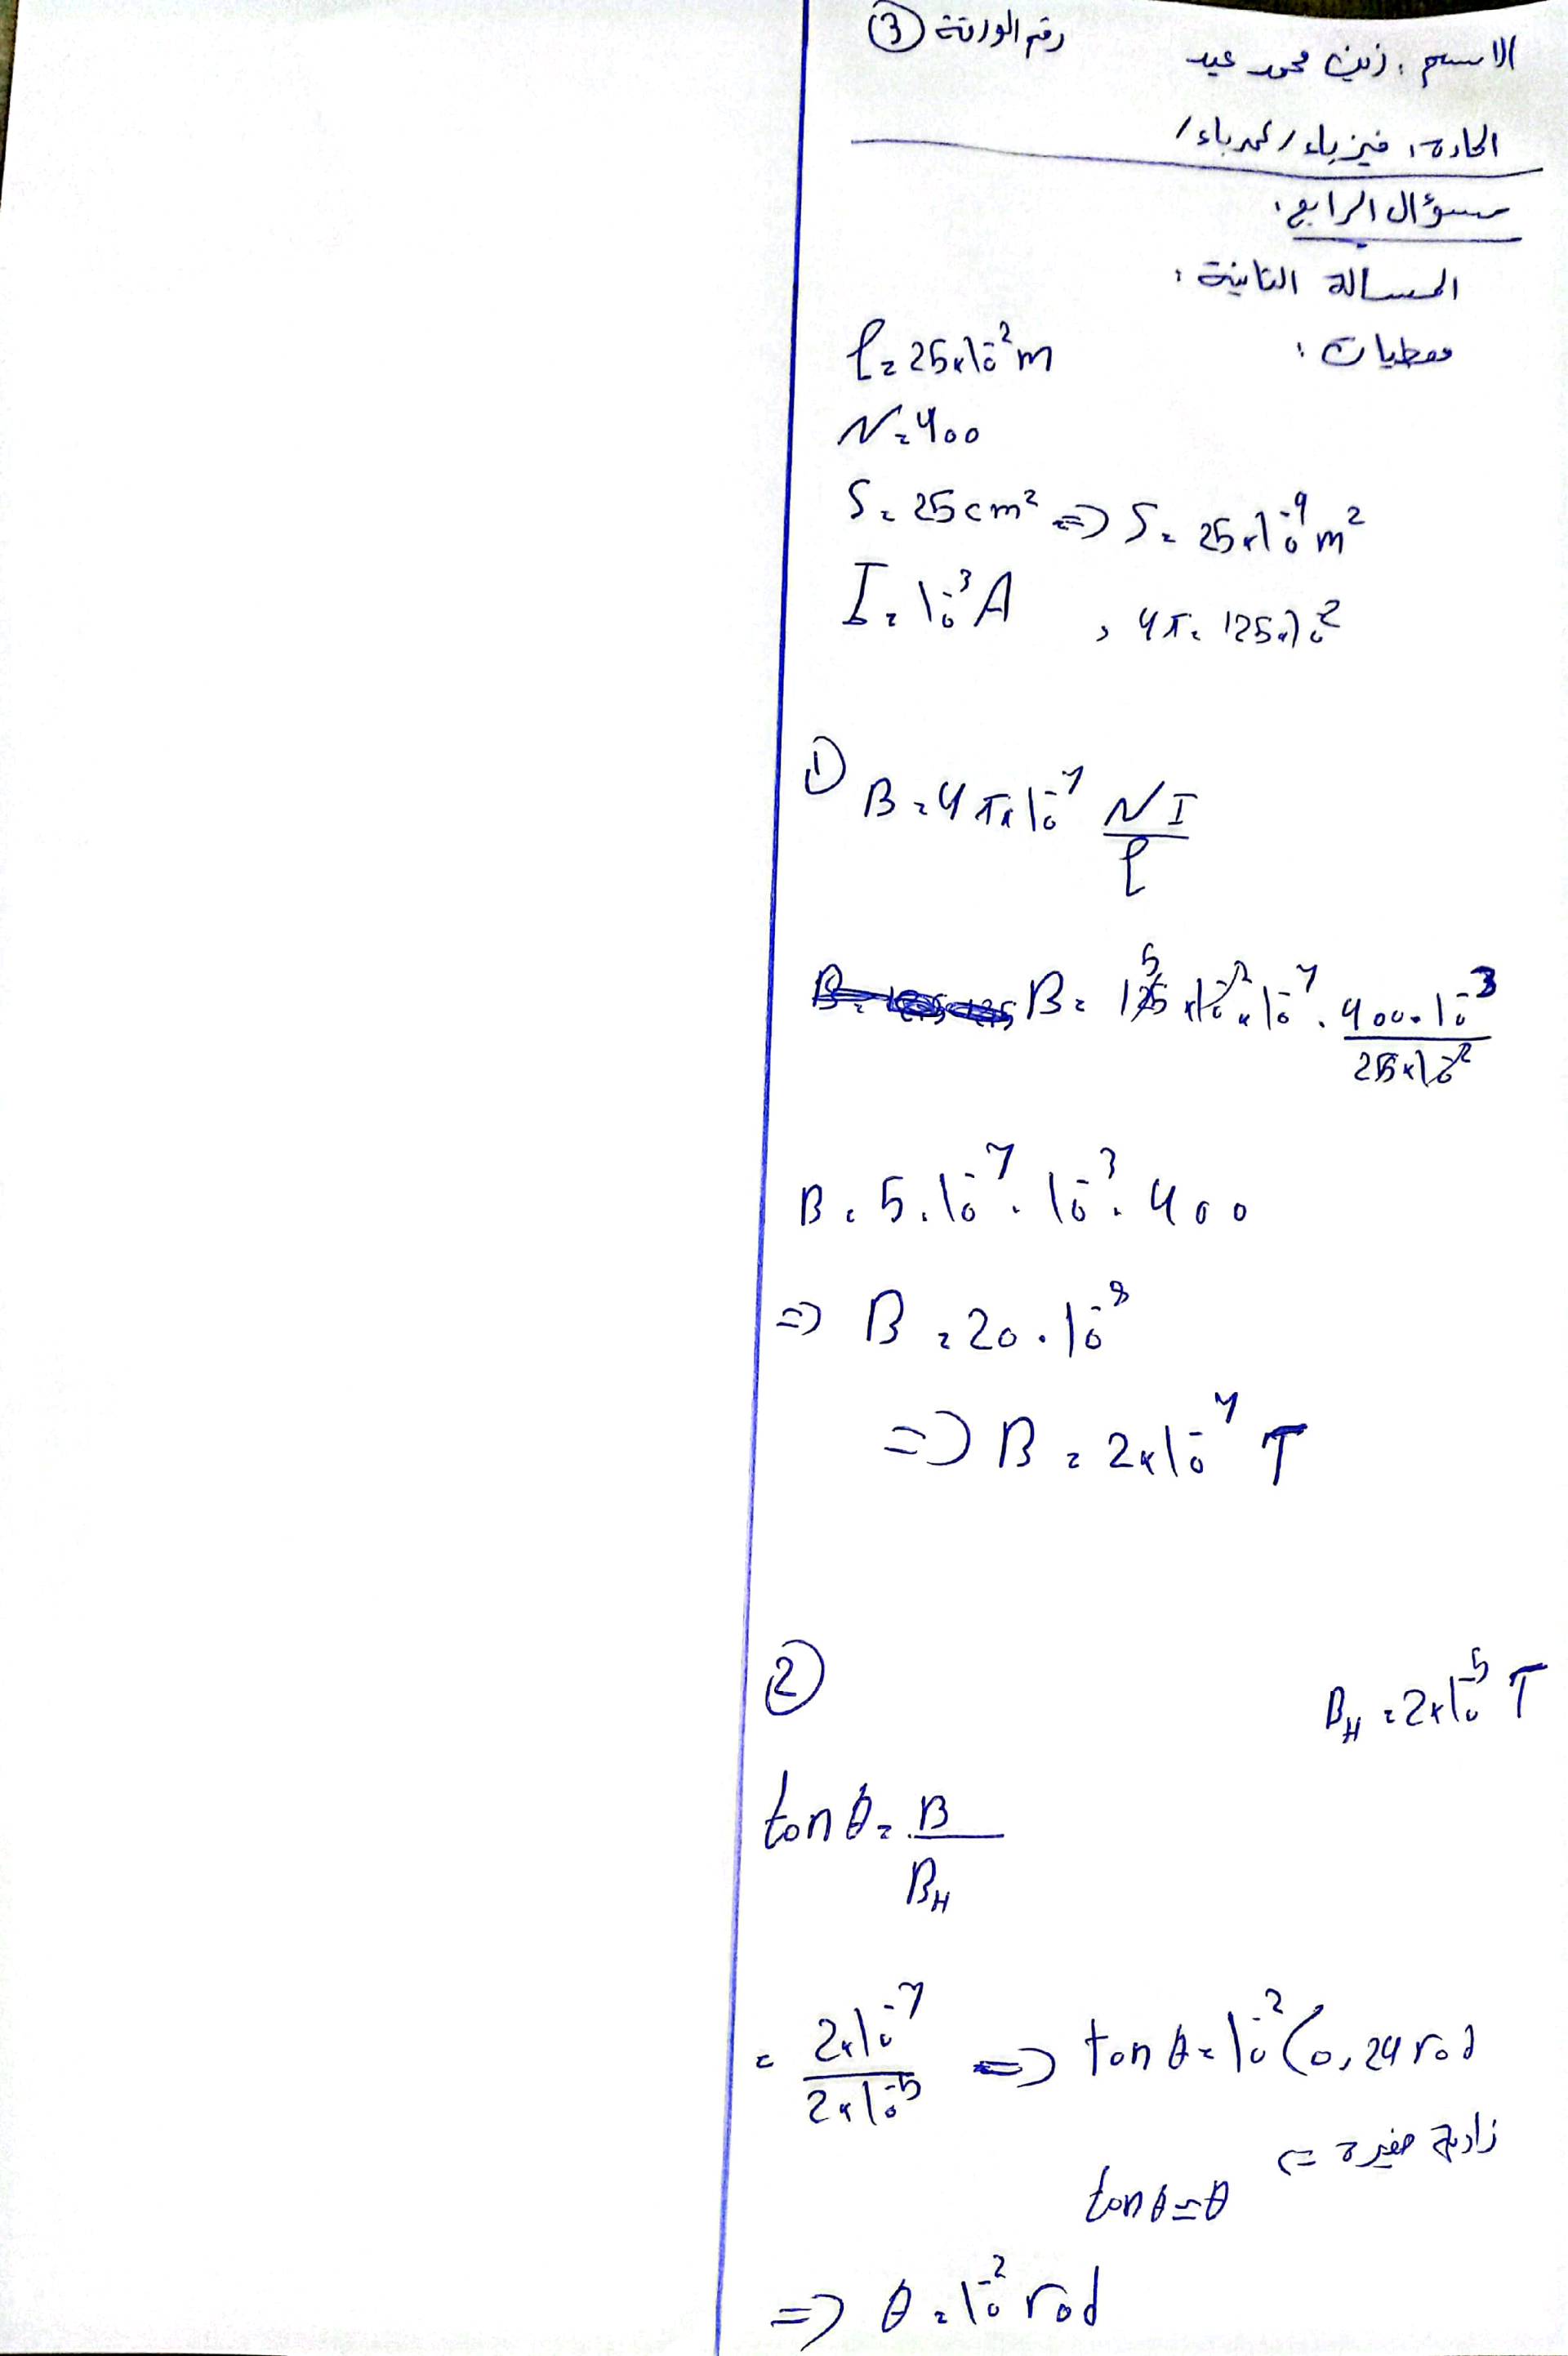 الاسم: زين محمد عيد رقم الورقة ③
المادة: فيزياء /كهرباء/
سؤال الرابع:
المسالة الثانية:
معطيات:
l = 25×10⁻² m
N = 400
S = 25 cm² => S = 25×10⁻⁴ m²
I = 10⁻³ A , 4π = 125×10⁻²
① B = 4π×10⁻⁷ NI/l
B = 125×10⁻²×10⁻⁷ . 400.10⁻³/25×10⁻²
B = 5.10⁻⁷.10⁻³.400
=> B = 20.10⁻⁸
=> B = 2×10⁻⁷ T
② B_H = 2×10⁻⁵ T
tan θ = B/B_H
= 2×10⁻⁷/2×10⁻⁵ => tan θ = 10⁻² < 0,24 rad
زاوية صغيرة <=
tan θ ≃ θ
=> θ = 10⁻² rad